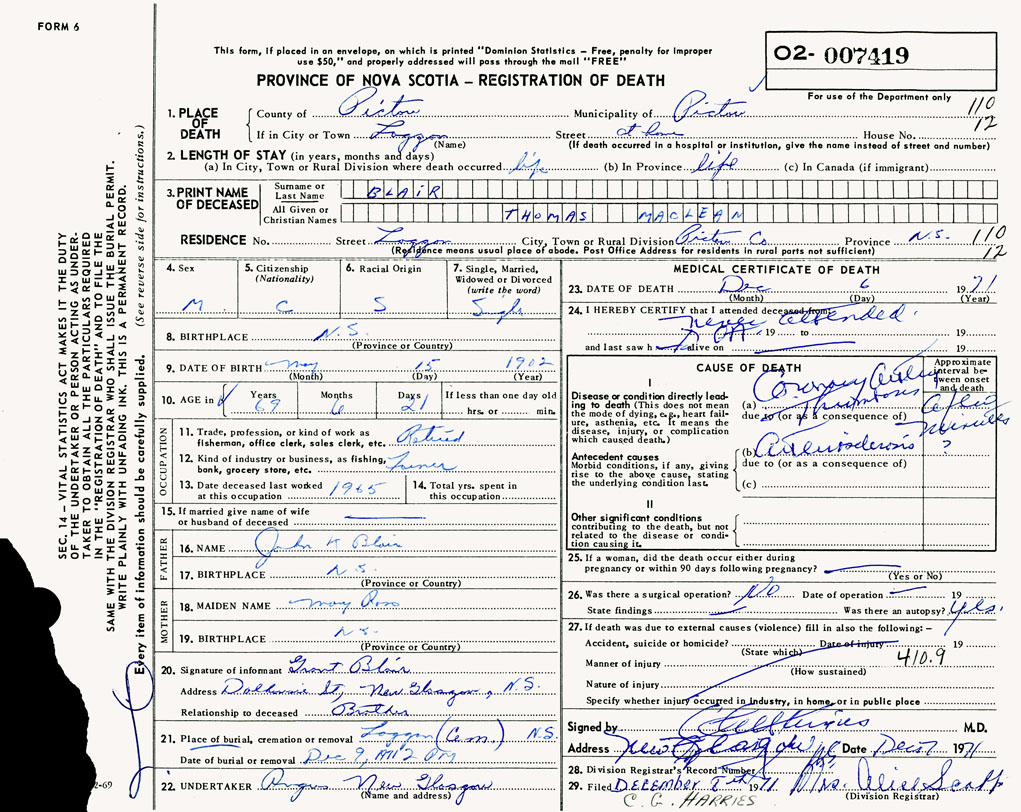 FORM 6
This form, if placed in an envelope, on which is printed "Dominion Statistics – Free, penalty for improper
use $50," and properly addressed will pass through the mail "FREE"
O2- 007419
PROVINCE OF NOVA SCOTIA – REGISTRATION OF DEATH
For use of the Department only
SEC. 14 – VITAL STATISTICS ACT MAKES IT THE DUTY
OF THE UNDERTAKER OR PERSON ACTING AS UNDER-
TAKER TO OBTAIN ALL THE PARTICULARS REQUIRED
IN THE "REGISTRATION OF DEATH" AND TO FILE THE
SAME WITH THE DIVISION REGISTRAR WHO SHALL ISSUE THE BURIAL PERMIT.
WRITE PLAINLY WITH UNFADING INK. THIS IS A PERMANENT RECORD.
Every item of information should be carefully supplied. (See reverse side for instructions.)
1. PLACE OF DEATH
County of Pictou Municipality of Pictou 110
If in City or Town Loggan Street at home House No. 12
(Name) (If death occurred in a hospital or institution, give the name instead of street and number)
2. LENGTH OF STAY (in years, months and days)
(a) In City, Town or Rural Division where death occurred life (b) In Province life (c) In Canada (if immigrant)
3. PRINT NAME OF DECEASED
Surname or Last Name BLAIR
All Given or Christian Names THOMAS MACLEAN
RESIDENCE No. Street Loggan City, Town or Rural Division Pictou Co. Province N.S. 110
(Residence means usual place of abode. Post Office Address for residents in rural parts not sufficient) 12
4. Sex M
5. Citizenship (Nationality) C
6. Racial Origin S
7. Single, Married, Widowed or Divorced (write the word) Single
8. BIRTHPLACE N.S.
(Province or Country)
9. DATE OF BIRTH May 15 1902
(Month) (Day) (Year)
10. AGE in Years 69 Months 6 Days 21 If less than one day old hrs. or min.
OCCUPATION
11. Trade, profession, or kind of work as
fisherman, office clerk, sales clerk, etc. Retired
12. Kind of industry or business, as fishing,
bank, grocery store, etc.
13. Date deceased last worked
at this occupation 1965
14. Total yrs. spent in
this occupation
15. If married give name of wife
or husband of deceased
FATHER
16. NAME John K Blair
17. BIRTHPLACE N.S.
(Province or Country)
MOTHER
18. MAIDEN NAME May Ross
19. BIRTHPLACE N.S.
(Province or Country)
20. Signature of informant Grant Blair
Address Dalhousie St, New Glasgow, N.S.
Relationship to deceased Brother
21. Place of burial, cremation or removal Loggan (Cem.) N.S.
Date of burial or removal Dec 9, At 2 PM
22. UNDERTAKER Angus New Glasgow
(Name and address)
2-69
MEDICAL CERTIFICATE OF DEATH
23. DATE OF DEATH Dec 6 1971
(Month) (Day) (Year)
24. I HEREBY CERTIFY that I attended deceased from:
never attended.
19 to 19
and last saw h alive on 19
CAUSE OF DEATH
Approximate interval between onset and death
I
Disease or condition directly lead-
ing to death (This does not mean
the mode of dying, e.g., heart fail-
ure, asthenia, etc. It means the
disease, injury, or complication
which caused death.)
(a) Coronary Artery Thrombosis
due to (or as a consequence of)
minutes
Antecedent causes
Morbid conditions, if any, giving
rise to the above cause, stating
the underlying condition last.
(b) Arteriosclerosis ?
due to (or as a consequence of)
(c)
II
Other significant conditions
contributing to the death, but not
related to the disease or condi-
tion causing it.
25. If a woman, did the death occur either during
pregnancy or within 90 days following pregnancy?
(Yes or No)
26. Was there a surgical operation? No Date of operation 19
State findings Was there an autopsy? Yes.
27. If death was due to external causes (violence) fill in also the following: –
Accident, suicide or homicide? Date of injury 19
(State which)
Manner of injury 410.9
(How sustained)
Nature of injury
Specify whether injury occurred in industry, in home, or in public place
Signed by M.D.
Address New Glasgow Date Dec 7 1971
28. Division Registrar's Record Number
29. Filed DECEMBER 1971 Mrs. Alice Scott
(Division Registrar)
C. G. HARRIES